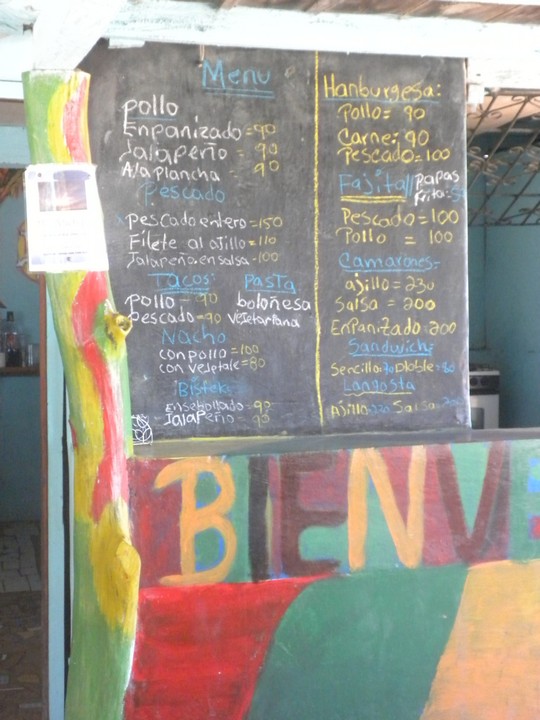 Menu
pollo
Enpanizado=90
Jalapeño = 90
A la plancha = 90
Pescado
Pescado entero=150
Filete al ajillo=110
Jalapeño en salsa=100
Tacos
pollo - 90
pescado=90
pasta
boloñesa
vejetariana
Nacho
con pollo =100
con vejetale=80
Bistek
Ensebollado=90
Jalapeño = 90
Hanburgesa:
Pollo= 90
Carne: 90
Pescado=100
Fajita//papas
frita:
Pescado=100
Pollo = 100
Camarones:
ajillo=230
Salsa = 200
Enpanizado=200
Sandwich:
Sencillo=70 Dloble=80
Langosta
Ajillo Salsa
BIENVE